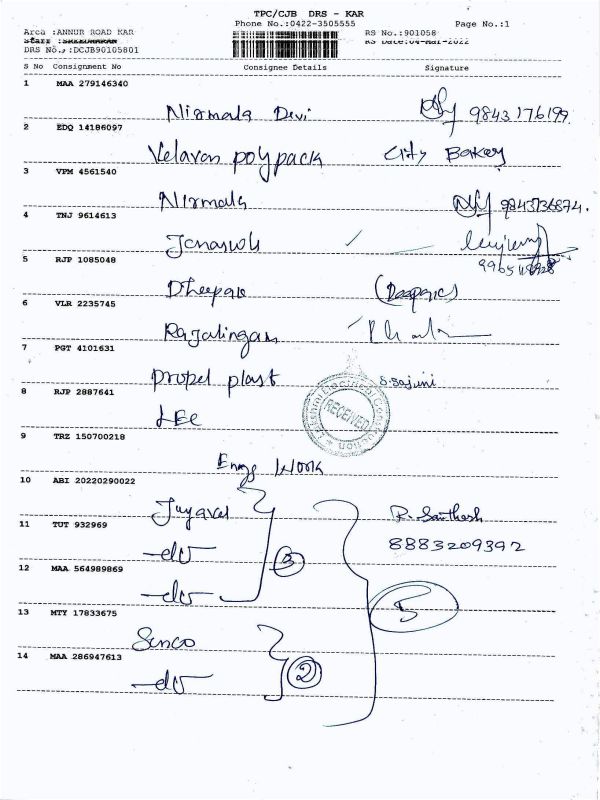 TPC/CJB DRS - KAR
Phone No.:0422-3505555
Page No.:1
Area :ANNUR ROAD KAR
RS No.:901058
Staff :SREEDHARAN
RS Date:04-Mar-2022
DRS No.:DCJB90105801
S No Consignment No Consignee Details Signature
1 MAA 279146340
Nirmala Devi 9843176199
2 EDQ 14186097
Velavan poly pack City Bakery
3 VPM 4561540
Nirmala 9843736874.
4 TNJ 9614613
5 RJP 1085048
Dheepak
6 VLR 2235745
Rajalingam
7 PGT 4101631
propel plast S.Sajuni
8 RJP 2887641
LEC
RECEIVED
9 TRZ 150700218
Engg Work
10 ABI 20220290022
P. Santhosh
11 TUT 932969
-do- 8883209392
3
12 MAA 564989869
-do-
5
13 MTY 17833675
Senco
14 MAA 286947613
-do- 2